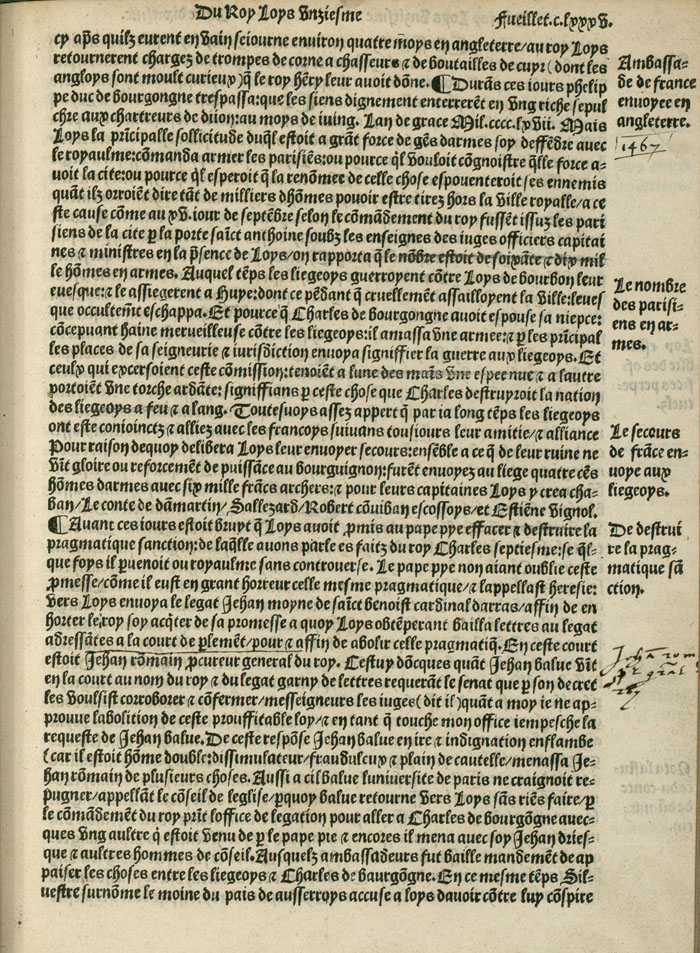 Du Roy Loys Vnziesme
Fueillet.c.lxxxv.
cy ap̃s quilz eurent en vain seiourne enuiron quatre moys en angleterre/au roy Loys
retournerent chargez de trompes de corne a chasseurs ⁊ de boutailles de cuyr (dont les
angloys sont moult curieux) q̃ le roy hẽry leur auoit dõne. ¶Durãs ces iours phelip
pe duc de bourgongne trespassa:que les siens dignement enterrerẽt en vng riche sepul
chre aux chartreurs de diion:au moys de iuing. Lan de grace Mil.cccc.lxvii. Mais
Loys la prĩcipalle sollicitude duq̃l estoit a grãt force de gẽs darmes soy deffẽdre auec
le royaulme:cõmanda armer les parisiẽs:ou pource q̃l vouloit cõgnoistre q̃lle force a-
uoit la cite:ou pource q̃l esperoit q̃ la renõmer de celle chose espouenteroit ses ennemis
quãt ilz orroiẽt dire tãt de milliers dhõmes pouoir estre tirez hors la ville royalle/a ce
ste cause cõme au xv. iour de septẽbre selon le cõmãdement du roy fussẽt issuz les pari
siens de la cite p̱ la porte saĩct anthoine soubz les enseignes des iuges officiers capitai
nes ⁊ ministres en la p̃sence de Loys/on rapporta q̃ le nõbre estoit de soixãte ⁊ dix mil
le hõmes en armes. Auquel tẽps les liegeoys guerroyent cõtre Loys de bourbon leur
euesque:⁊ le assiegerent a Huye:dont ce pẽdãt q̃ cruellemẽt assailloyent la ville:leuesf
que occultemẽt eschappa. Et pource q̃ Charles de bourgongne auoit espouse sa niepce:
cõcepuant haine merueilleuse cõtre les liegeoys:il amassa vne armee:⁊ p̱ les prĩcipal
les places de sa seigneurie ⁊ iurisdiction enuoya signiffier la guerre aux liegeoys. Et
ceulx qui excersoient ceste cõmission:tenoiẽt a lune des mais̃ vne espee nue ⁊ a lautre
portoiẽt vne torche ardãte: signiffians p̱ ceste chose que Charles destruyroit la nation
des liegeoys a feu ⁊ a lang. Toutesuoys assez appert q̃ par ia long tẽps les liegeoys
ont este cõioinctz ⁊ alliez auec les francoys suiuans tousiours leur amitie/⁊ alliance
Pour raison dequoy delibera Loys leur enuoyer secours:ensẽble a ce q̃ de leur ruine ne
vĩt gloire ou reforcemẽt de puissãce au bourguignon:furẽt enuoyez au liege quatre cẽs
hõmes darmes auec six mille frãcs archers:⁊ pour leurs capitaines Loys y crea cha-
ban/Le conte de dãmartin/Sallezard/Robert cõuiban escossoys/et Estiẽne vignol.
¶Auant ces iours estoit bruyt q̃ Loys auoit ꝓmis au pape pye effacer ⁊ destruire la
pragmatique sanction:de laq̃lle auons parle es faitz du roy Charles septiesme:se q̃l-
que foys il puenoit ou royaulme sans controuerse. Le pape pye non aiant oublie ceste
ꝓmesse/cõme il eust en grant horreur celle mesme pragmatique/⁊ lappellast heresie:
vers Loys enuoya le legat Jehan moyne de saĩct benoist cardinal darras/affin de en
horter le roy soy acq̃ter de sa promesse a quoy Loys obtẽperant bailla lettres au legat
adressãtes a la court de p̱lemẽt/pour ⁊ affin de abolir celle pragmatiq̃. En ceste court
estoit Jehan rõmain ꝓcureur general du roy. Cestuy dõcques quãt Jehan balue vĩt
en la court au nom du roy ⁊ du legat garny de lettres requerãt le senat que p̱ son decret
les voulsist corroborer ⁊ cõfermer/messeigneurs les iuges(dit il)quãt a moy ie ne ap-
prouue labolition de ceste prouffitable loy/⁊ en tant q̃ touche mon office iempesche la
requeste de Jehan balue. De ceste respõse Jehan balue en ire ⁊ indignation enflambe
(car il estoit hõme double:dissimulateur/frauduleux ⁊ plain de cautelle/menassa Je-
han rõmain de plusieurs choses. Aussi a cil balue luniuersite de paris ne craignoit re-
pugner/appellãt le cõseil de leglise/p̱quoy balue retourne vers Loys sãs riẽs faire/p̱
le cõmãdemẽt du roy prĩt loffice de legation pour aller a Charles de bourgõgne auec-
ques vng aultre q̃ estoit venu de p̱ le pape pie ⁊ encores il mena auec soy Jehan dries-
que ⁊ aultres hommes de cõseil. Ausquelz ambassadeurs fut baille mandemẽt de ap
paiser les choses entre les liegeoys ⁊ Charles de bourgõgne. En ce mesme tẽps Sil-
uestre surnõme le moine du pais de ausserroys accuse a loys dauoir cõtre luy cõspire
Ambassa-
de de france
enuoyee en
angleterre.
1467
Le nombre
des parisi-
ens en ar-
mes.
Le secours
de frãce en-
uoye aux
liegeoys.
De destrui
re la prag-
matique sã
ction.